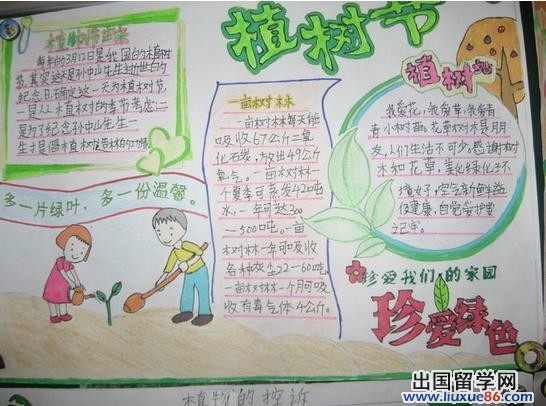 植树节
植树节的由来
每年的3月12日是我国的植树
节,其实这天是孙中山先生逝世的
纪念日,而确定这一天为植树节,
一是从植树的季节考虑;二
是为了纪念孙中山先生
生
多一片绿叶,多一份温馨。
一亩树林
一亩树林每天能
吸收67公斤二氧
化石炭,放出49公斤
氧气。一亩树林一
个夏季可蒸发420吨
水,一年可达300
—500吨。一亩
树林一年可吸收
各种灰尘22—60吨。
一亩树林一个月可吸
收有毒气体4公斤。
植树
我爱花,我爱草,我爱青
青小树苗。花草树木是朋
友,人们生活不可少。感谢树
木和花草,美化绿化环
境好,空气新鲜益
健康,自觉爱护要
记牢。
珍爱我们的家园
珍爱绿色
植物的控诉
出国留学网
www.liuxue86.com